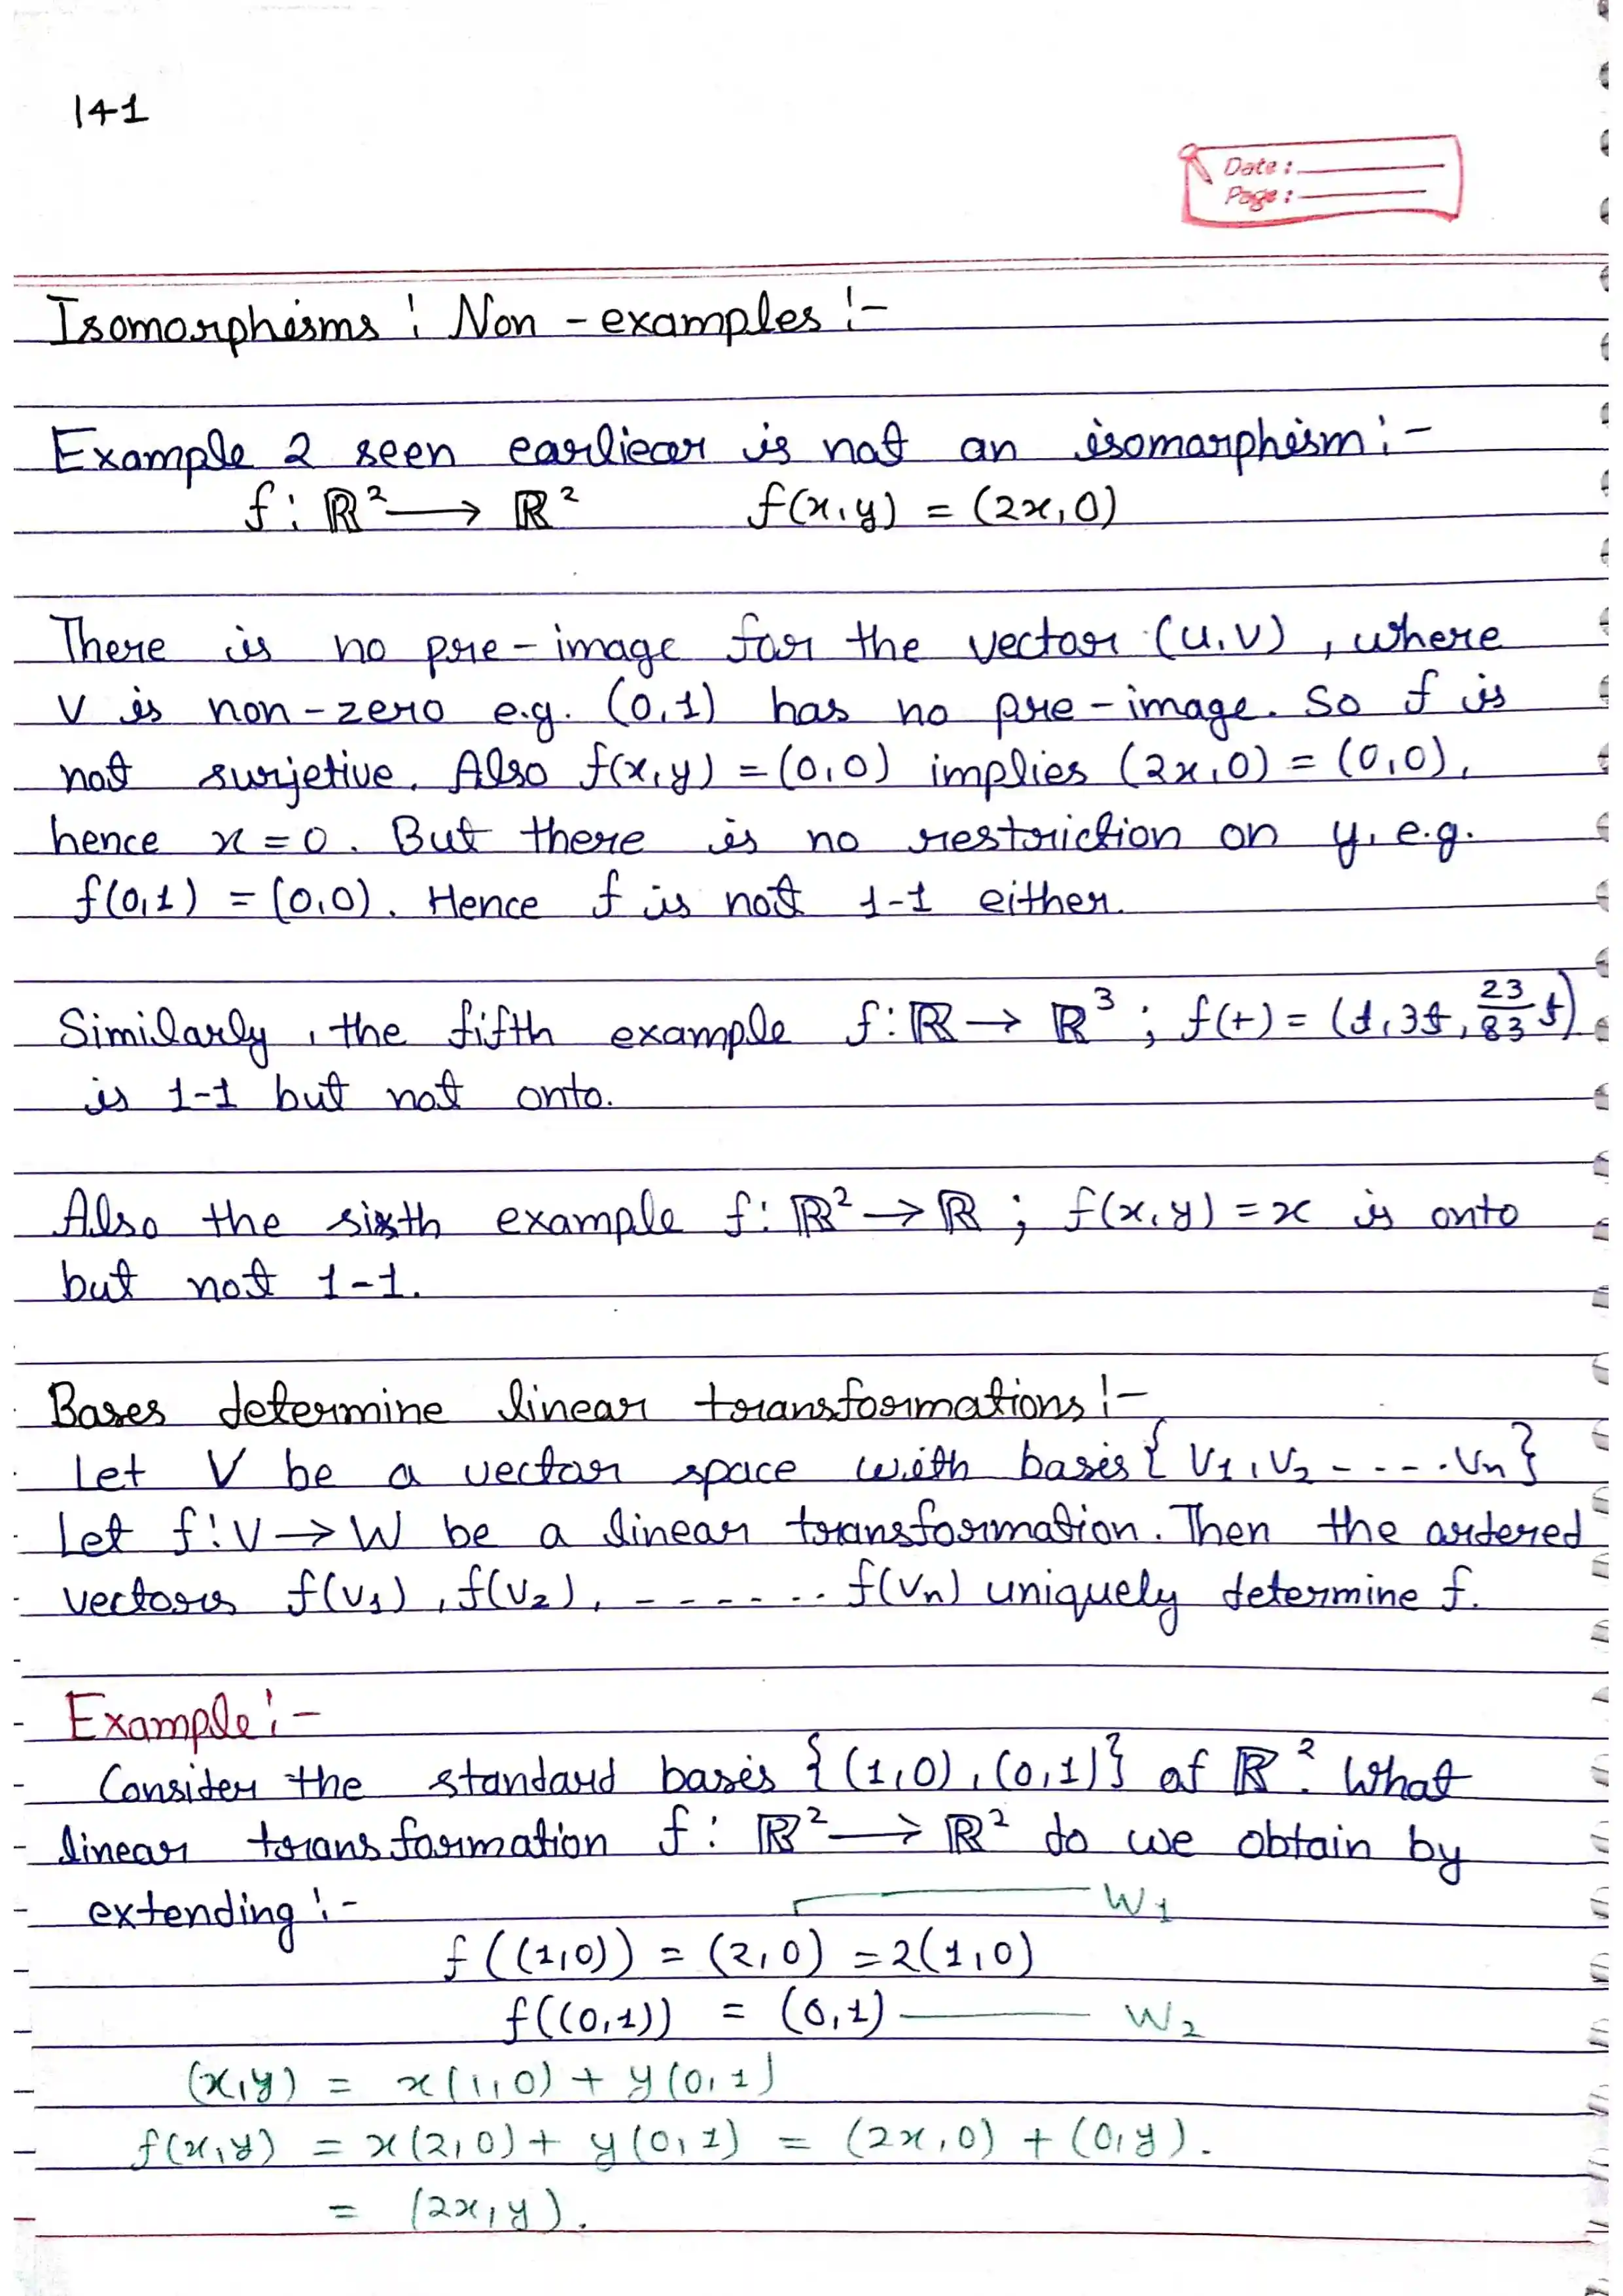 141
Date :
Page :
Isomorphisms : Non - examples :-
Example 2 seen earliear is not an isomorphism :-
f : ℝ² → ℝ² f(x,y) = (2x,0)
There is no pre - image for the vector (u,v) , where
v is non - zero e.g. (0,1) has no pre - image. So f is
not surjetive. Also f(x,y) = (0,0) implies (2x,0) = (0,0),
hence x = 0. But there is no restriction on y, e.g.
f(0,1) = (0,0). Hence f is not 1-1 either.
Similarly , the fifth example f : ℝ → ℝ³ ; f(t) = (t, 3t, 23/83 t)
is 1-1 but not onto.
Also the sixth example f : ℝ² → ℝ ; f(x,y) = x is onto
but not 1-1.
Bases determine linear transformations :-
Let V be a vector space with basis { v₁, v₂ - - - - . vₙ }
Let f : V → W be a linear transformation. Then the ordered
vectors f(v₁) , f(v₂) , - - - - - . . f(vₙ) uniquely determine f.
Example :-
Consider the standard basis { (1,0) , (0,1) } of ℝ². What
linear transformation f : ℝ² → ℝ² do we obtain by
extending :-
W₁
f((1,0)) = (2,0) = 2(1,0)
f((0,1)) = (0,1) W₂
(x,y) = x(1,0) + y(0,1)
f(x,y) = x(2,0) + y(0,1) = (2x,0) + (0,y).
= (2x,y).